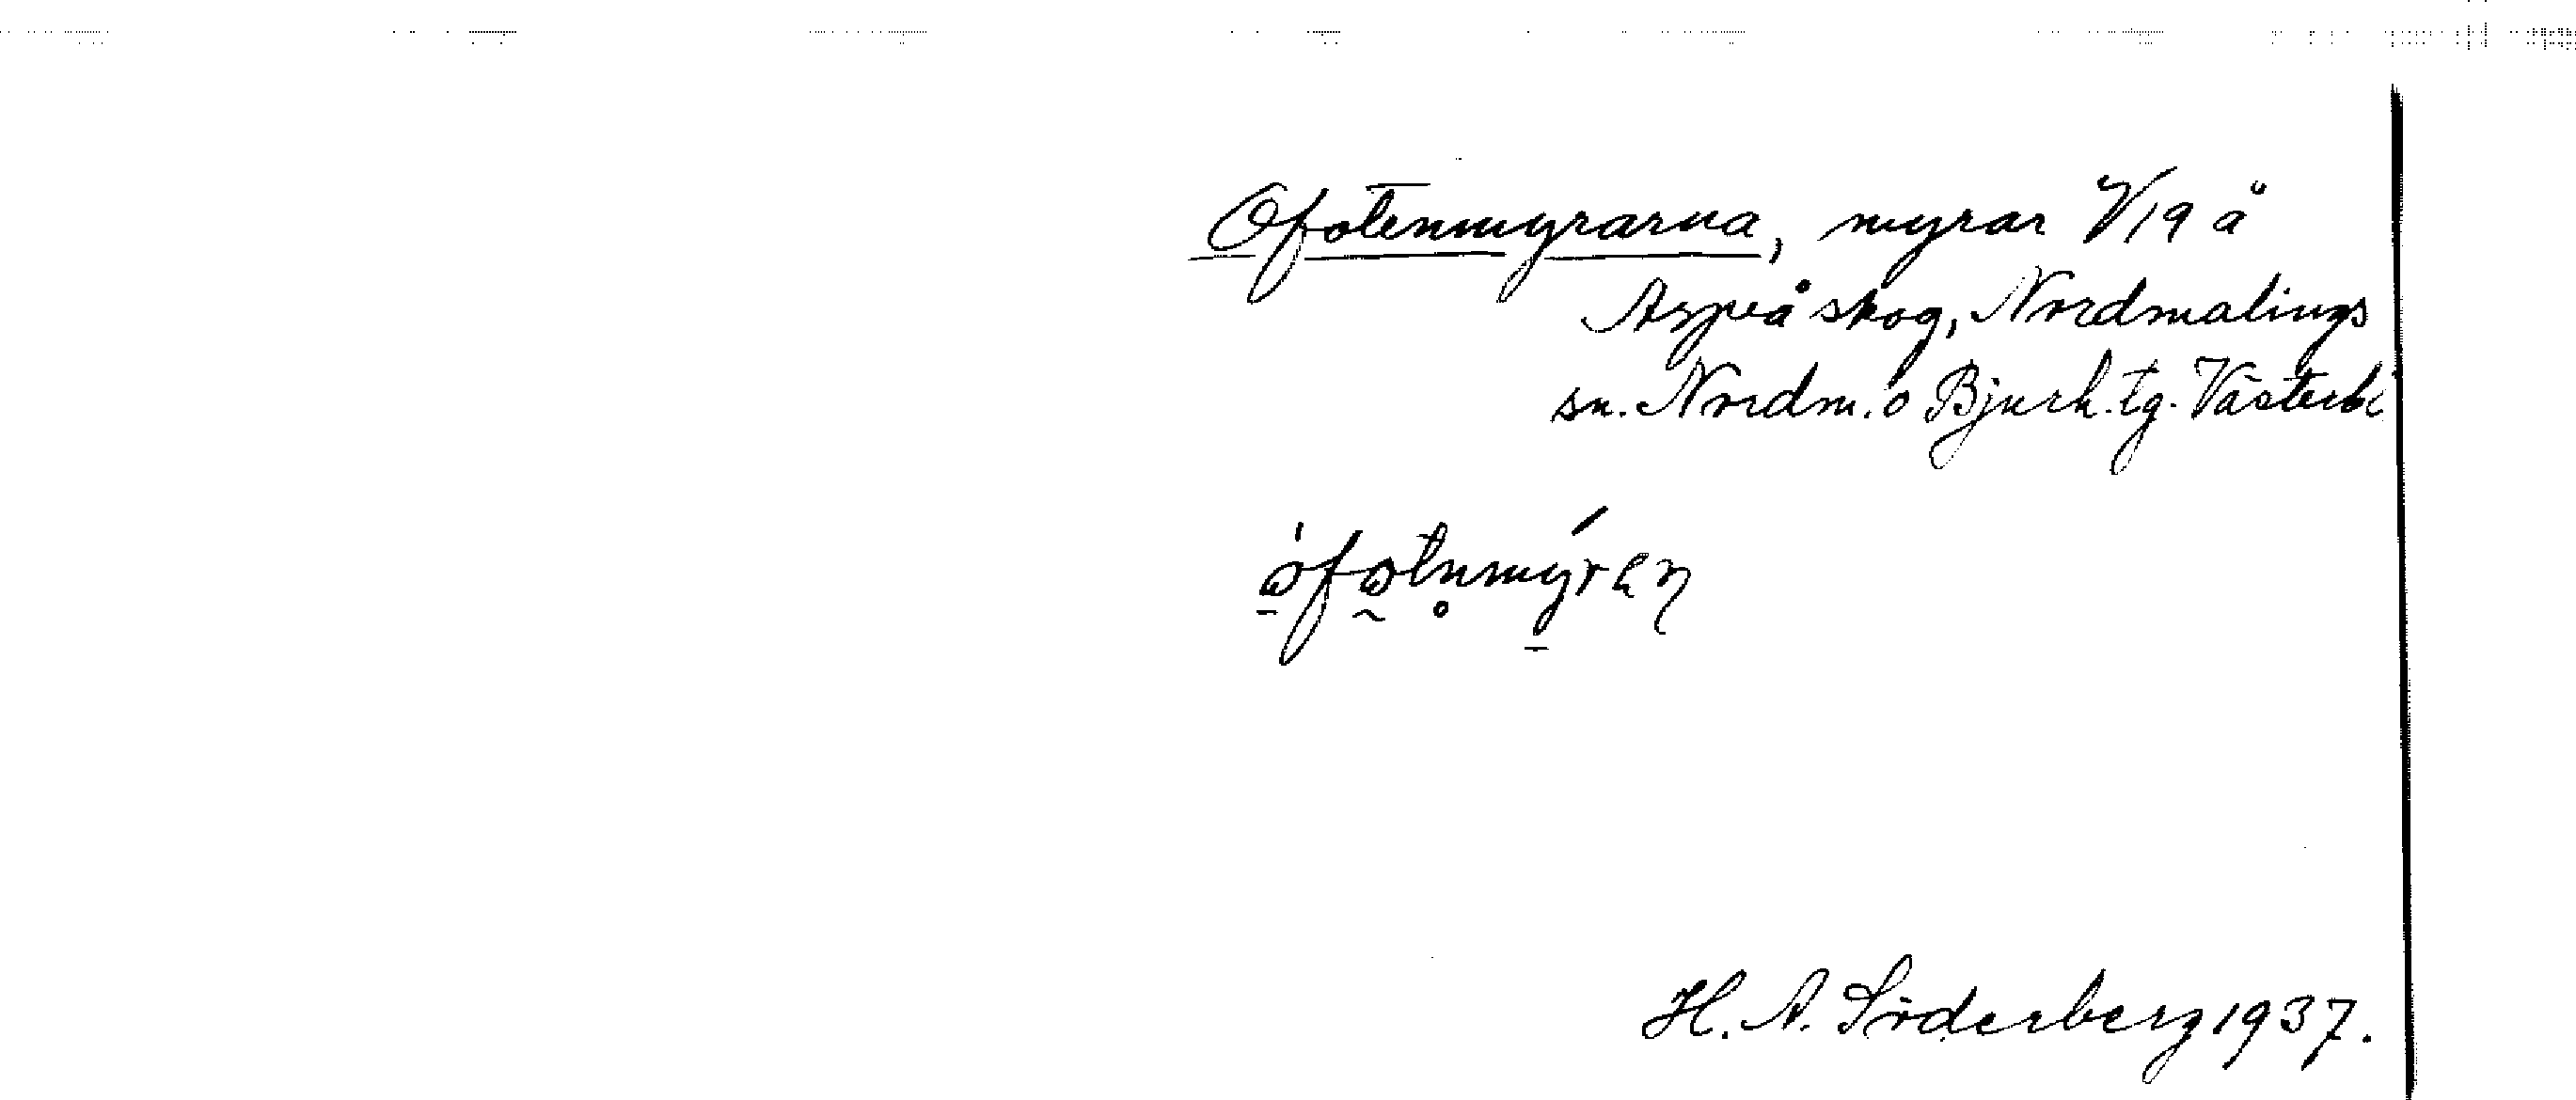 Ofotenmyrarna, myrar V19 å
Aspeå skog, Nordmalings
sn. Nordm. o Bjurh. tg. Västerb
H. A. Söderberg 1937.